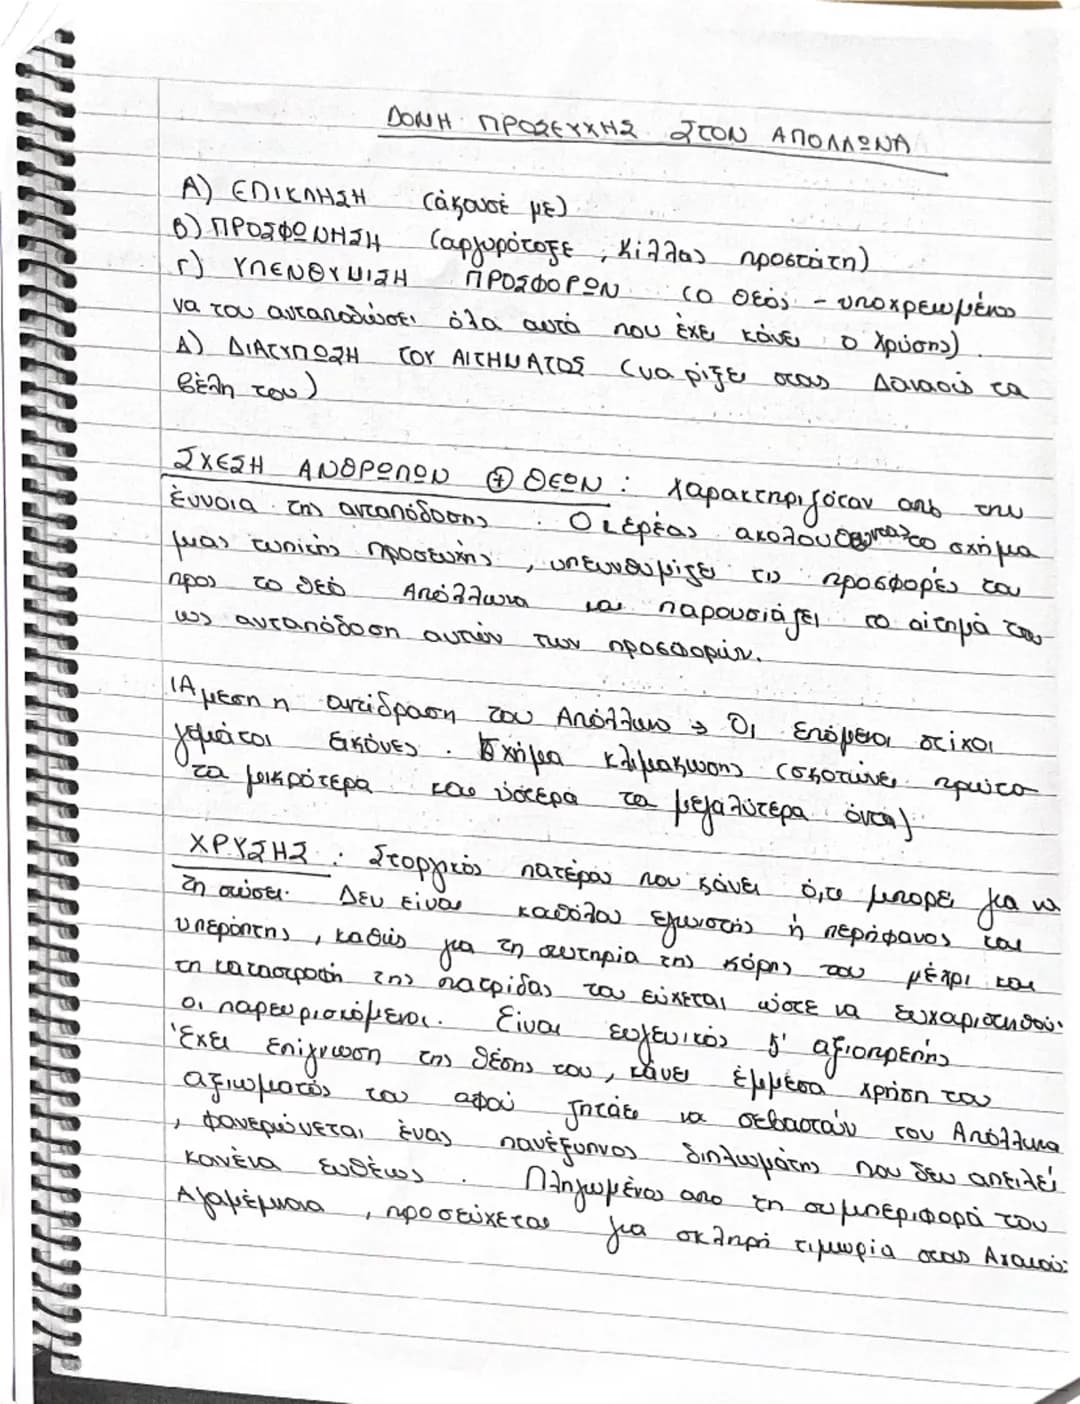 ΔΟΜΗ ΠΡΟΣΕΥΧΗΣ ΣΤΟΝ ΑΠΟΛΛΩΝΑ
Α) ΕΠΙΚΛΗΣΗ (άκουσέ με)
Β) ΠΡΟΣΦΩΝΗΣΗ (αργυρότοξε, Κίλλας προστάτη)
Γ) ΥΠΕΝΘΥΜΙΣΗ ΠΡΟΣΦΟΡΩΝ (ο θεός - υποχρεωμένος
να του ανταποδώσει όλα αυτά που έχει κάνει ο Χρύσης).
Δ) ΔΙΑΤΥΠΩΣΗ ΤΟΥ ΑΙΤΗΜΑΤΟΣ (να ρίξει στους Δαναούς τα
βέλη του)
ΣΧΕΣΗ ΑΝΘΡΩΠΩΝ + ΘΕΩΝ : Χαρακτηριζόταν από την
έννοια της ανταπόδοσης. Ο ιερέας ακολουθώντας το σχήμα
μιας τυπικής προσευχής, υπενθυμίζει τις προσφορές του
προς το θεό Απόλλωνα και παρουσιάζει το αίτημά του
ως ανταπόδοση αυτών των προσφορών.
(Άμεση η αντίδραση του Απόλλωνα → Οι επόμενοι στίχοι
γεμάτοι εικόνες. Σχήμα κλιμάκωσης (σκοτώνει πρώτα
τα μικρότερα και ύστερα τα μεγαλύτερα όντα)
ΧΡΥΣΗΣ : Στοργικός πατέρας που κάνει ό,τι μπορεί για να
τη σώσει. Δεν είναι καθόλου εγωιστής ή περήφανος και
υπερόπτης, καθώς για τη σωτηρία της κόρης του μέχρι και
τη καταστροφή της πατρίδας του εύχεται ώστε να ευχαριστηθούν
οι παρευρισκόμενοι. Είναι ευγενικός & αξιοπρεπής
Έχει επίγνωση της θέσης του, κάνει έμμεσα χρήση του
αξιωματός του αφού ζητάει να σεβαστούν τον Απόλλωνα
, φανερώνεται ένας πανέξυπνος διπλωμάτης που δεν απειλεί
κανένα ευθέως. Πληγωμένος απο τη συμπεριφορά του
Αγαμέμνονα, προσεύχεται για σκληρή τιμωρία στους Αχαιούς